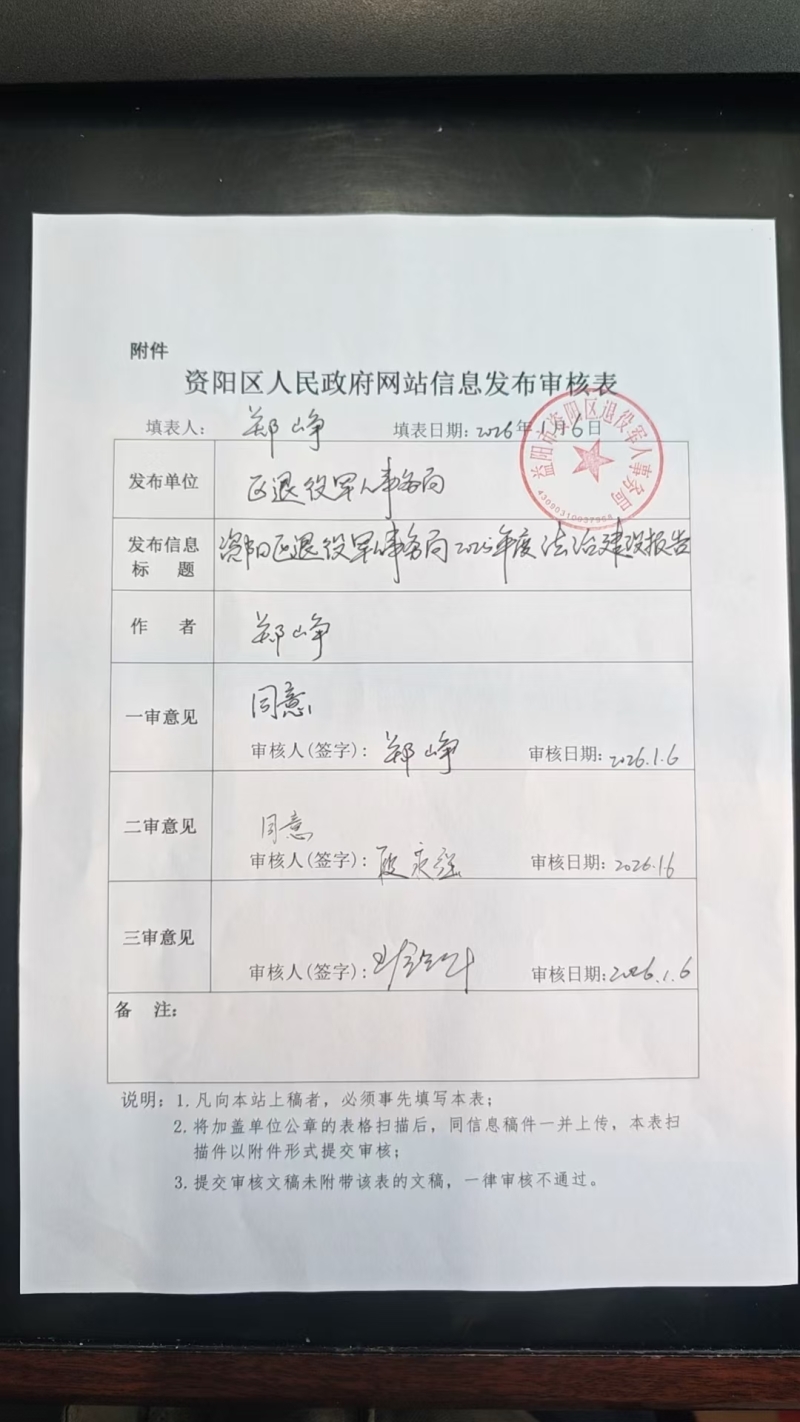 附件
资阳区人民政府网站信息发布审核表
填表人： 郑峥 填表日期：2026年1月6日
益阳市资阳区退役军人事务局
发布单位 区退役军人事务局
发布信息标题 资阳区退役军人事务局2025年度法治建设报告
作者 郑峥
一审意见 同意
审核人(签字)： 郑峥 审核日期：2026.1.6
二审意见 同意
审核人(签字)： 审核日期：2026.1.6
三审意见
审核人(签字)： 审核日期：2026.1.6
备注：
说明：1. 凡向本站上稿者，必须事先填写本表；
2. 将加盖单位公章的表格扫描后，同信息稿件一并上传，本表扫
描件以附件形式提交审核；
3. 提交审核文稿未附带该表的文稿，一律审核不通过。